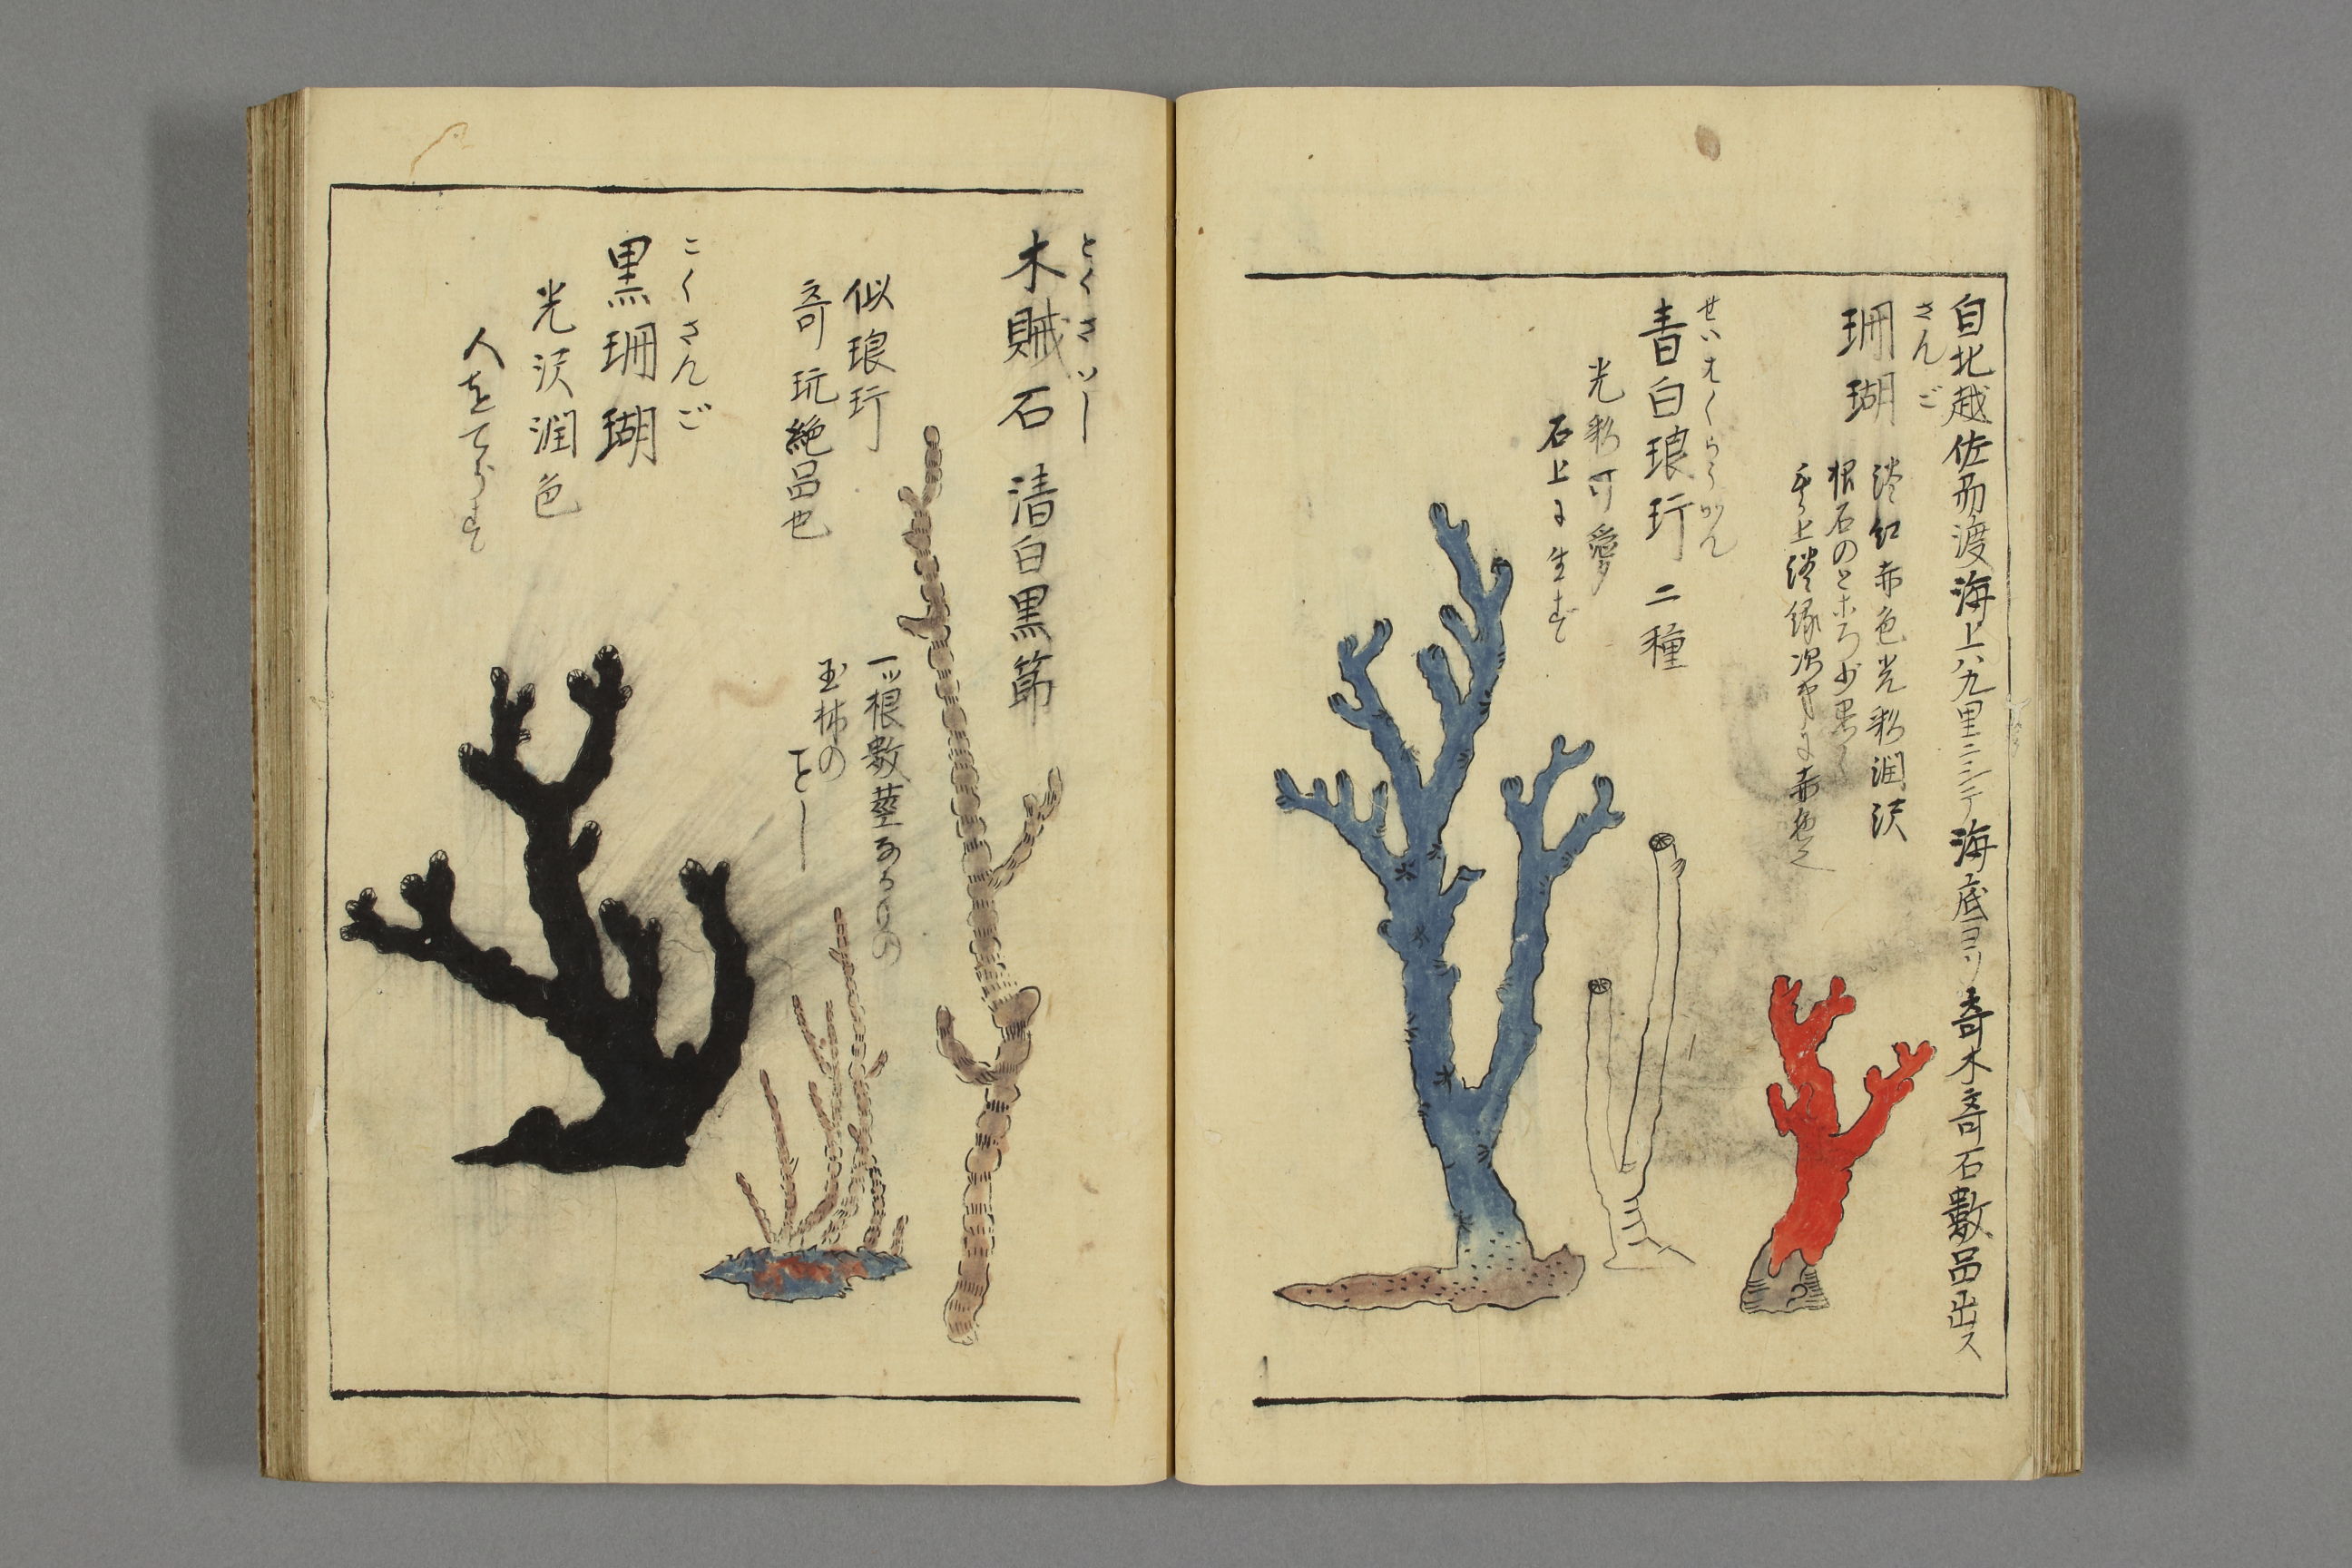 自北越佐而渡海上八九里ニシテ海底ヨリ奇木奇石數品出ス
さんご
珊瑚
淡紅赤色光彩潤沢
根石のところ少黒く
上淡緑次第に赤色
せいはくらうかん
青白琅玕二種
光彩可愛
石上に生ず
とくさいし
木賊石 清白黒節
似琅玕
奇玩絶品也
一ッ根數莖あるもの
玉林の
ごとし
こくさんご
黒珊瑚
光沢潤色
人をてらす